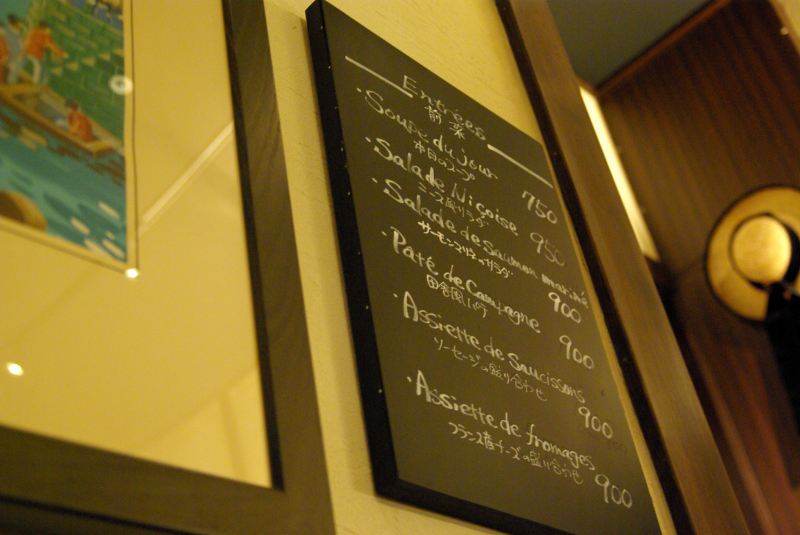 Entrées
前菜
・Soupe du jour
本日のスープ
750
・Salade Niçoise
ニース風サラダ
950
・Salade de saumon mariné
サーモンマリネのサラダ
900
・Paté de Campagne
田舎風パテ
900
・Assiette de saucissons
ソーセージの盛り合わせ
900
・Assiette de fromages
フランス産チーズの盛り合わせ
900